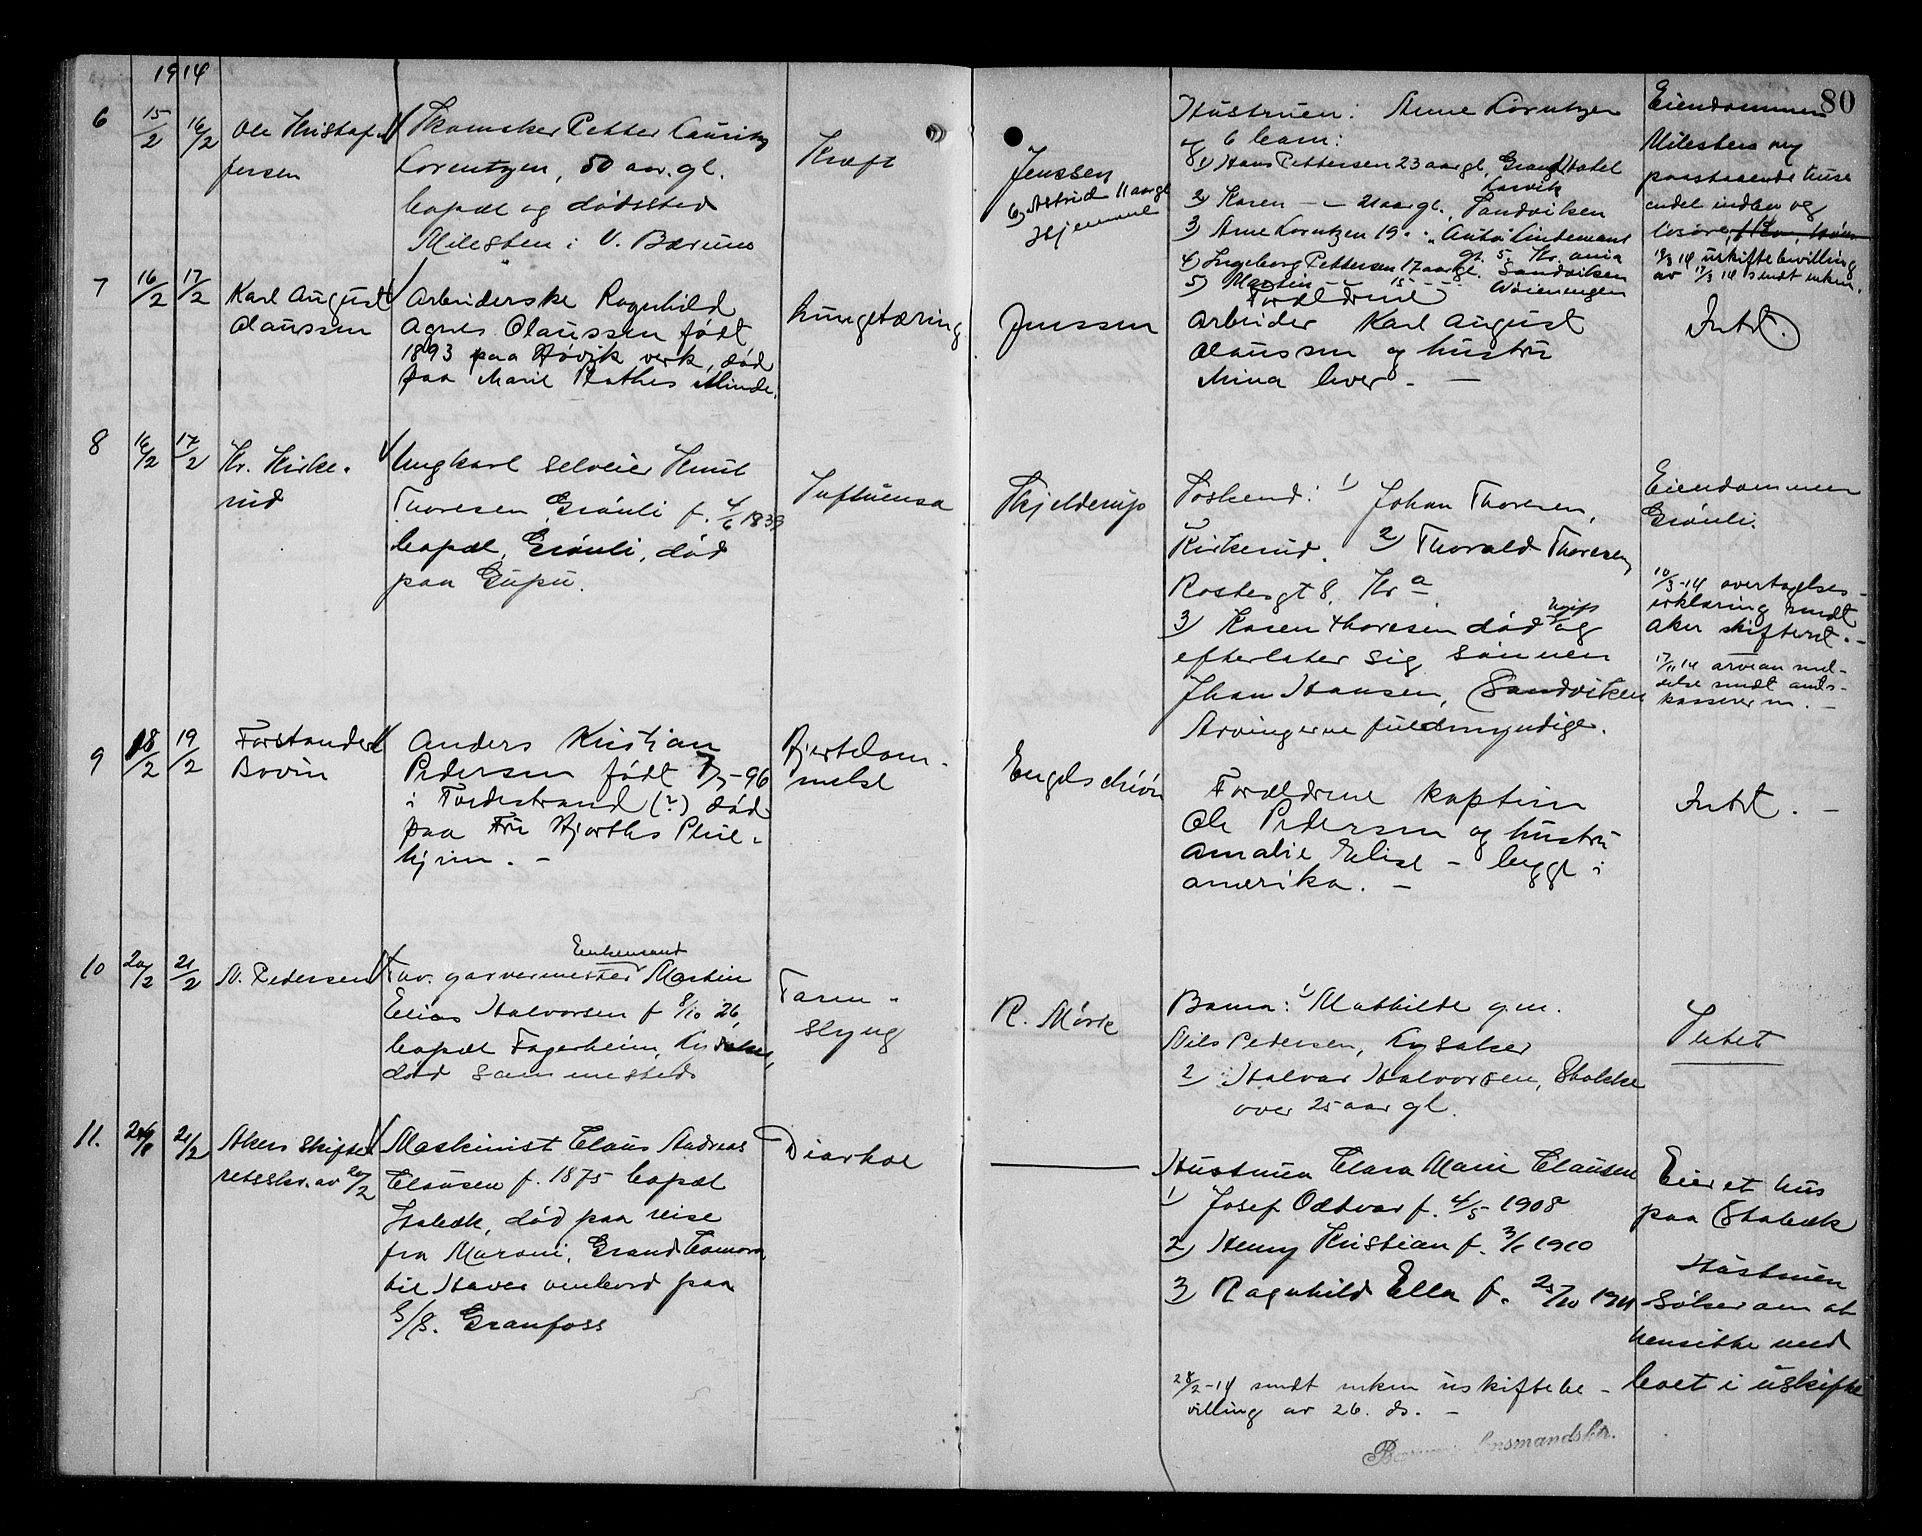 1914
80
6
15/2
16/2
Ole Kristof-
fersen
Skomaker Petter Lauritz
Lorentzen, 50 aar gl.
bopæl og dødssted
Milesten i V. Bærum
Kræft
Jenssen
6) Astrid 11 aar gl
Hjemme
Hustruen: Anne Lorntzen
og 6 barn:
1) Hans Pettersen 23 aar gl, Grand Hotel
Larvik
2) Karen - - 21 aar gl., Sandviken
3) Arne Lorntzen 19 - " Anto Lindemans
gt. 5, Kr.ania
4) Ingeborg Pettersen 17 aar gl. Sandviken
5) Martin - - 15 - - Wøienengen
Eiendommen
Milesten
paastaaende huse
endel indbo og
løsøre
17/3 14 uskiftebevilling
av 17/3 14 sendt enken.
7
16/2
17/2
Karl August
Claussen
Arbeiderske Ragnhild
Agnes Claussen født
1893 paa Høvik verk, død
paa Marie Plathes Minde.
Lungetæring
Jenssen
Forældrene
Arbeider Karl August
Claussen og hustru
Mina lever. -
Intet.
8
16/2
17/2
Kr. Kirke-
rud
Ungkarl selveier Knut
Thoresen Grønli f. 4/6 1833
bopæl, Grønli, død
paa Gupu.
Influensa
Skjelderup
Søskend: 1) Johan Thoresen,
Kirkerud. 2) Thorvald Thoresen
Rostesgt 8, Kr a
3) Karen Thoresen død ugift og
efterlater sig sønnen
Johan Hansen, Sandviken
Arvingerne fuldmyndige.
Eiendommen
Grønli.
10/3-14 overtagelses-
erklæring sendt
Aker skifteret. -
17/11 14 arveanmel-
delse sendt amts-
kassereren. -
9
18/2
19/2
Forstander
Bovin
Anders Kristian
Pedersen født 7/7-96
i Fordestrand (?) død
paa Fru Hjorths Pleie-
hjem. -
Hjertelam-
melse
Engelschiøn
Forældrene kaptein
Ole Pedersen og hustru
Amalie Elise - bygge i
Amerika. -
Intet. -
10
20/2
21/2
N. Pedersen
Enkemand
Fhv. garvermester Martin
Elias Halvorsen f 8/10 26,
bopæl Fagerheim, Lysaker,
død sammesteds
Tarm-
slyng
R. Mørk
Barn: 1) Mathilde gm.
Nils Pedersen, Lysaker
2) Halvar Halvorsen, Stokke
over 25 aar gl.
Intet
11.
21/2
Akers Skifte-
retsskr. av 20/2
Maskinist Claus Andreas
Clausen f. 1875 bopæl
Stabæk, død paa reise
fra Maroni, Grand Comora
til Havre ombord paa
S/S. Granfoss
Diarhoe
Hustruen Clara Marie Clausen
1) Josef Oddvar f. 4/5 1908
2) Henry Kristian f. 3/1 1910
3) Ragnhild Ella f. 25/10 1911
28/2-14 sendt enken uskiftebe-
villing av 26. ds. -
Eier et hus
paa Stabæk
Hustruen
søker om at
hensitte med
boet i uskifte